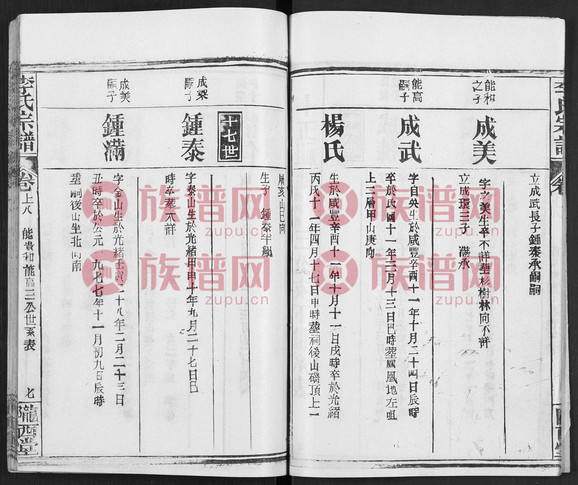 李氏宗譜
卷
立成武長子鍾泰承嗣嗣
能和之子
成美
字之美生卒不詳塟核樹林向不詳
立成環三子 滿永
能高嗣子
成武
字自央生於咸豐辛酉十一年十月二十四日辰時
卒於民國十一年三月十三日巳時塟鳳凰地左咀
上二層甲山庚向
楊氏
生於咸豐辛酉十一年十月十一日戌時卒於光緒
丙戌十一年四月十七日申時塟祠後山礄頂上一
山巳向
生子 鍾泰
十七世
成環嗣子
鍾泰
字泰山生於光緒甲申十年九月二十七日巳
時卒塟不詳
成美嗣子
鍾滿
字金山生於光緒 二十八年二月二十三日
丑時卒於公元一九七七年十一月初九日辰時
塟嗣後山坐北向南
李氏宗譜
卷上八 能貴和能高三公世系表
七
隴西堂
族譜网
zupu.cn